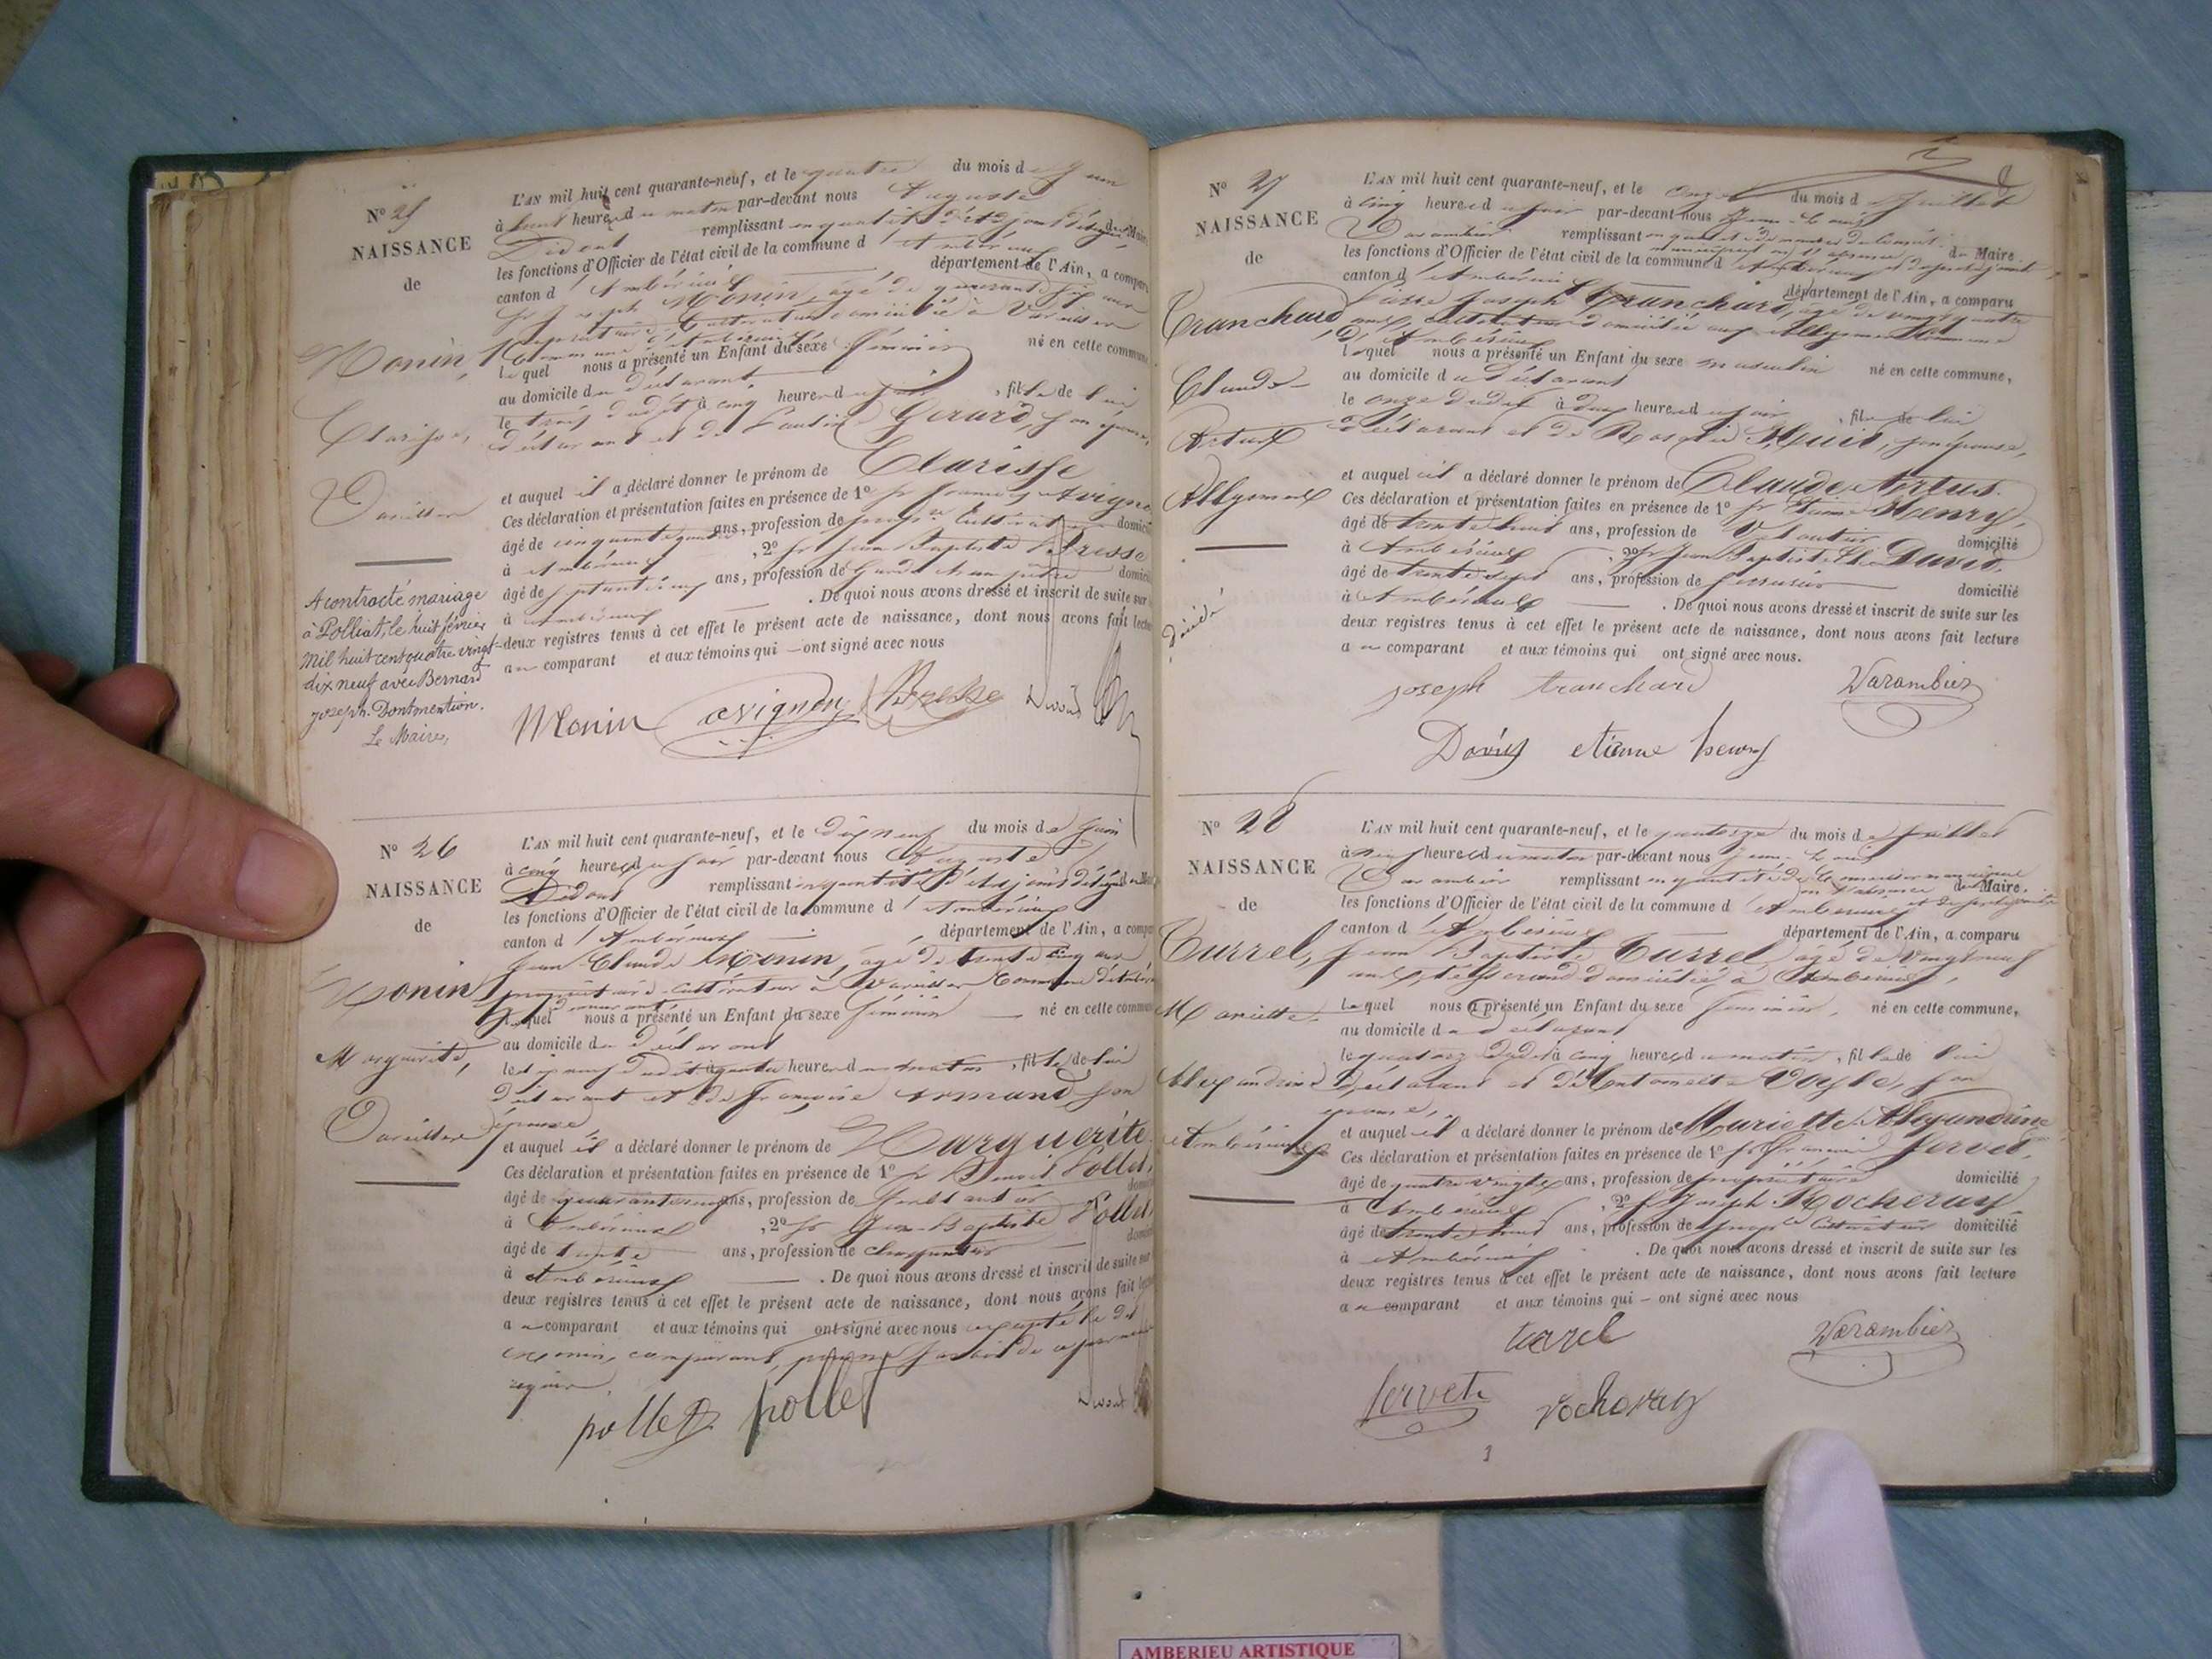 N° 25
NAISSANCE
de
Monin,
Clarisse,
Vareilles
A contracté mariage
à Polliat, le huit février
mil huit cent quatre vingt
dix neuf avec Bernard
Joseph Dontmention.
Le Maire,
L'AN mil huit cent quarante-neuf, et le quatre du mois de Juin
à huit heures du matin par-devant nous Auguste
Didout remplissant en qualité d'adjoint délégué du Maire
les fonctions d'Officier de l'état civil de la commune d'Ambérieux
canton d'Ambérieux département de l'Ain, a comparu
Sr Joseph Monin, âgé de quarante six ans
propriétaire Cultivateur domicilié à Vareilles
Commune d'Ambérieux
lequel nous a présenté un Enfant du sexe féminin né en cette commune
au domicile du déclarant
le trois dudit à cinq heures du soir, fille de lui
déclarant et de Gerard, son épouse,
et auquel il a déclaré donner le prénom de Clarisse
Ces déclaration et présentation faites en présence de 1° Sr François Avignon
âgé de cinquante quatre ans, profession de prop.re Cultivateur domicilié
à Ambérieux, 2° Sr Jean Baptiste Bresse
âgé de ans, profession de Garde champêtre domicilié
à Ambérieux. De quoi nous avons dressé et inscrit de suite sur
deux registres tenus à cet effet le présent acte de naissance, dont nous avons fait lecture
au comparant et aux témoins qui ont signé avec nous
Monin avignon Bresse
N° 26
NAISSANCE
de
Monin
Marguerite,
Vareilles
L'AN mil huit cent quarante-neuf, et le dix neuf du mois de Juin
à cinq heures du soir par-devant nous Auguste
Didout remplissant en qualité d'adjoint délégué du Maire
les fonctions d'Officier de l'état civil de la commune d'Ambérieux
canton d'Ambérieux département de l'Ain, a comparu
Jean Claude Monin, âgé de trente cinq ans
propriétaire Cultivateur à Vareilles Commune d'Ambérieux
lequel nous a présenté un Enfant du sexe féminin né en cette commune
au domicile du déclarant
le dix neuf dudit à quatre heures du matin, fille de lui
déclarant et de Françoise Armand son
épouse
et auquel il a déclaré donner le prénom de Marguerite
Ces déclaration et présentation faites en présence de 1° Sr Benoit Pollet,
âgé de ans, profession de domicilié
à Ambérieux, 2° Sr Jean-Baptiste Pollet,
âgé de trente ans, profession de charpentier domicilié
à Ambérieux. De quoi nous avons dressé et inscrit de suite sur
deux registres tenus à cet effet le présent acte de naissance, dont nous avons fait lecture
au comparant et aux témoins qui ont signé avec nous excepté le dit
Monin, comparant, pour ne savoir de ce
requis.
pollet pollet
N° 27
NAISSANCE
de
Tranchard
Claude
Artus
Allymes
Décédé
L'AN mil huit cent quarante-neuf, et le onze du mois de Juillet
à cinq heures du soir par-devant nous Jean-Louis
Varambier remplissant en qualité de membre du Conseil
municipal en l'absence du Maire
les fonctions d'Officier de l'état civil de la commune d'Ambérieux et de
canton d'Ambérieux département de l'Ain, a comparu
Pierre Joseph Tranchard, âgé de vingt quatre
ans, cultivateur domicilié aux Allymes Commune
d'Ambérieux
lequel nous a présenté un Enfant du sexe masculin né en cette commune,
au domicile du déclarant
le onze dudit à deux heures du soir, fils de lui
déclarant et de Rosalie son épouse,
et auquel il a déclaré donner le prénom de Claude Artus.
Ces déclaration et présentation faites en présence de 1° Sr Etienne Henry,
âgé de trente huit ans, profession de Voiturier domicilié
à Ambérieux, 2° Sr Jean Baptiste David,
âgé de trente sept ans, profession de serrurier domicilié
à Ambérieux. De quoi nous avons dressé et inscrit de suite sur les
deux registres tenus à cet effet le présent acte de naissance, dont nous avons fait lecture
au comparant et aux témoins qui ont signé avec nous.
joseph tranchard Varambier
David etienne henry
N° 28
NAISSANCE
de
Turrel,
Mariette
Alexandrine
Ambérieux
L'AN mil huit cent quarante-neuf, et le quatorze du mois de Juillet
à neuf heures du matin par-devant nous Jean-Louis
Varambier remplissant en qualité de Conseiller municipal
en l'absence du Maire.
les fonctions d'Officier de l'état civil de la commune d'Ambérieux
canton d'Ambérieux département de l'Ain, a comparu
Jean Baptiste Turrel âgé de vingt neuf
ans, tisserand domicilié à Ambérieux,
lequel nous a présenté un Enfant du sexe féminin, né en cette commune,
au domicile du déclarant
le quatorze dudit à cinq heures du matin, fille de lui
déclarant et de Antoinette son
épouse,
et auquel il a déclaré donner le prénom de Mariette Alexandrine
Ces déclaration et présentation faites en présence de 1° Sr François Servet,
âgé de ans, profession de propriétaire domicilié
à Ambérieux, 2° Sr Joseph Rocheray
âgé de trente ans, profession de prop.re Cultivateur domicilié
à Ambérieux. De quoi nous avons dressé et inscrit de suite sur les
deux registres tenus à cet effet le présent acte de naissance, dont nous avons fait lecture
au comparant et aux témoins qui ont signé avec nous
turel Varambier
Servet rocheray
3
AMBERIEU ARTISTIQUE